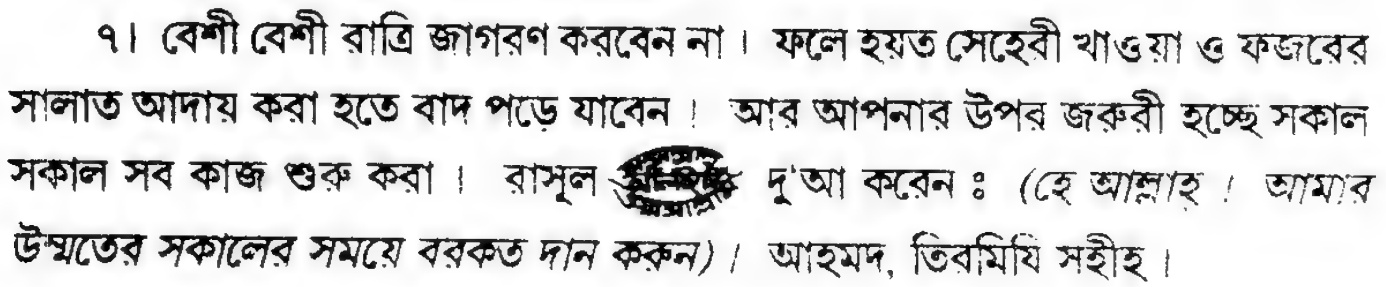 ৭। বেশী বেশী রাত্রি জাগরণ করবেন না। ফলে হয়ত সেহেরী খাওয়া ও ফজরের
সালাত আদায় করা হতে বাদ পড়ে যাবেন। আর আপনার উপর জরুরী হচ্ছে সকাল
সকাল সব কাজ শুরু করা। রাসূল দু'আ করেন ঃ (হে আল্লাহ! আমার
উম্মতের সকালের সময়ে বরকত দান করুন)। আহমদ, তিরমিযি সহীহ।